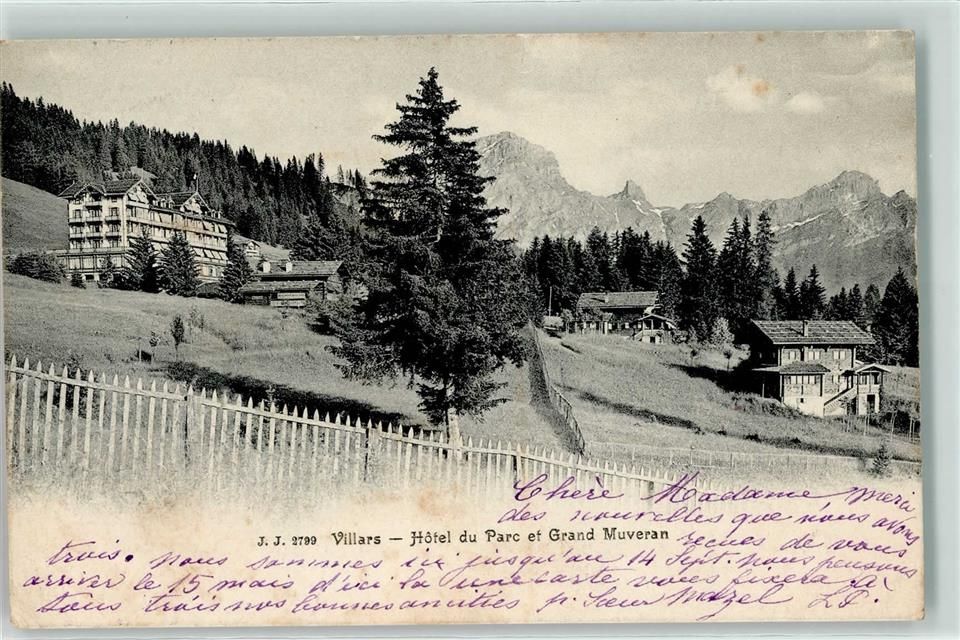 Chère Madame merci
des nouvelles que nous avons
reçues de vous
J. J. 2799 Villars — Hôtel du Parc et Grand Muveran
trois. nous sommes ici jusqu'au 14 Sept. nous pensons
arriver le 15 mais d'ici la une carte vous fixera à
tous trois nos bonnes amitiés p. Sœur